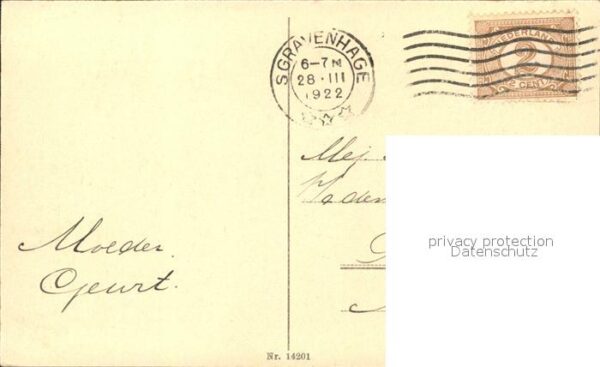 SGRAVENHAGE
6-7 N
28·III
1922
NEDERLAND
2
CENT
Mej.
privacy protection
Datenschutz
Moeder.
Geurt.
Nr. 14201